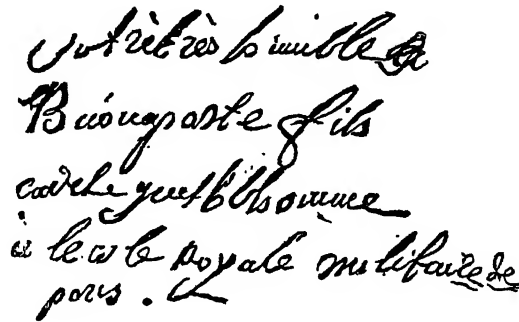 Votre très humble
Buonaparte fils
cadet gentilhomme
à lecole royale militaire de
paris.